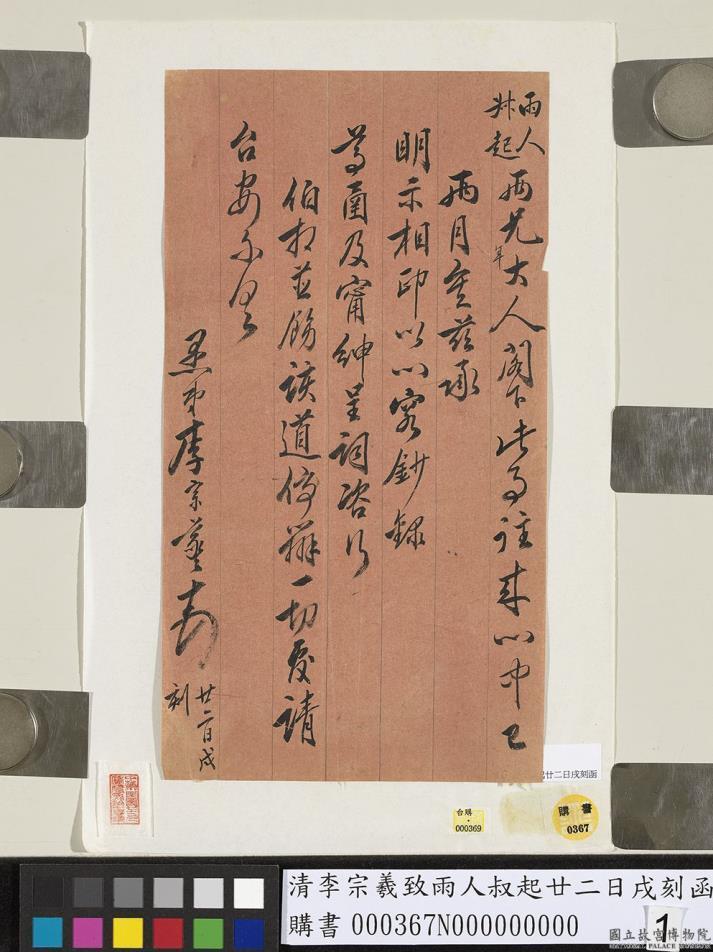 雨人
叔起 两兄年大人閣下此事往來心中已
兩月矣茲承
明示相印以心容鈔錄
尊函及甯紳呈詞咨行
伯相並飭該道停辦一切敬請
台安不具
愚弟李宗羲頓 廿二日戌
刻
起廿二日戌刻函
台購
000369
購書
0367
清李宗羲致雨人叔起廿二日戌刻函
購書 000367N000000000 1
國立故宮博物院
PALACE